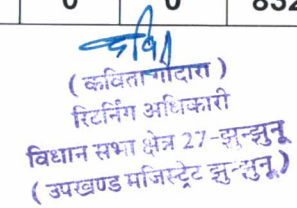 0 0 832
कविता
( कविता गोदारा )
रिटर्निंग अधिकारी
विधान सभा क्षेत्र 27-झुन्झुनू
( उपखण्ड मजिस्ट्रेट झुन्झुनू )